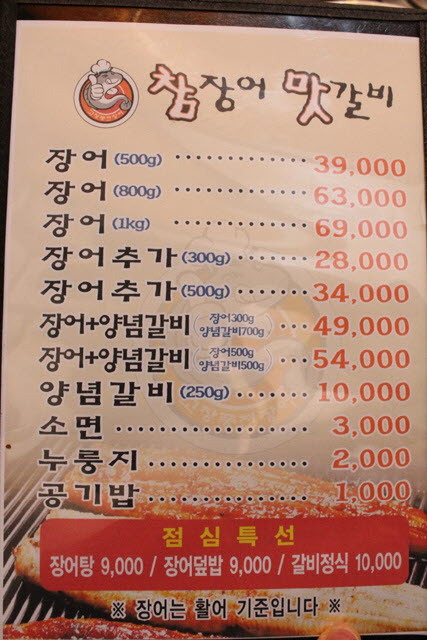 참장어 맛갈비
장어 (500g) ·············· 39,000
장어 (800g) ·············· 63,000
장어 (1kg) ·············· 69,000
장어추가 (300g) ········ 28,000
장어추가 (500g) ········ 34,000
장어+양념갈비 (장어300g 양념갈비700g) ··· 49,000
장어+양념갈비 (장어500g 양념갈비500g) ··· 54,000
양념갈비 (250g) ········ 10,000
소면 ····················· 3,000
누룽지 ·················· 2,000
공기밥 ·················· 1,000
점심특선
장어탕 9,000 / 장어덮밥 9,000 / 갈비정식 10,000
※ 장어는 활어 기준입니다 ※